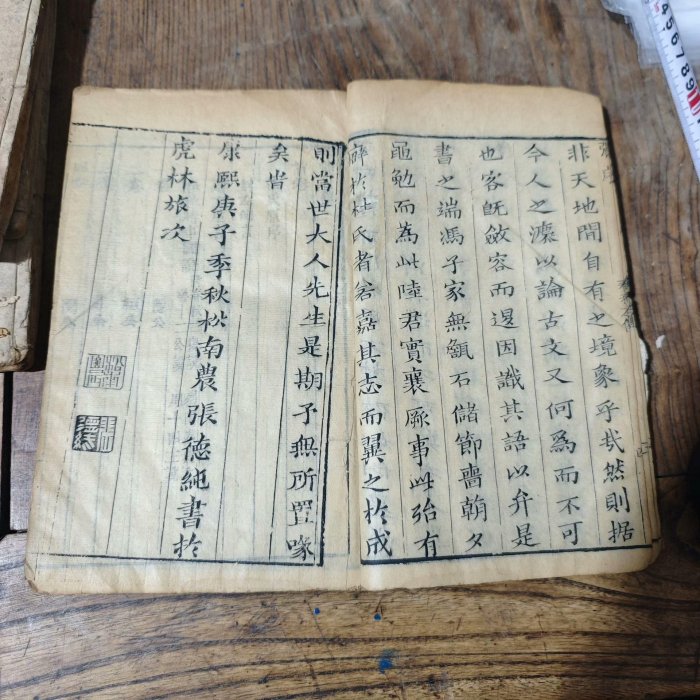 非天地間自有之境象乎哉然則据
今人之灋以論古文又何爲而不可
也客旣斂容而退因識其語以弁是
書之端馮子家無甔石儲節嗇朝夕
黽勉而為此陸君實襄厥事此殆有
癖於杜氏者若嘉其志而翼之於成
則當世大人先生是期予無所置喙
矣峕
康熙庚子季秋松南農張德純書於
虎林旅次
4 5 6 7 8 9